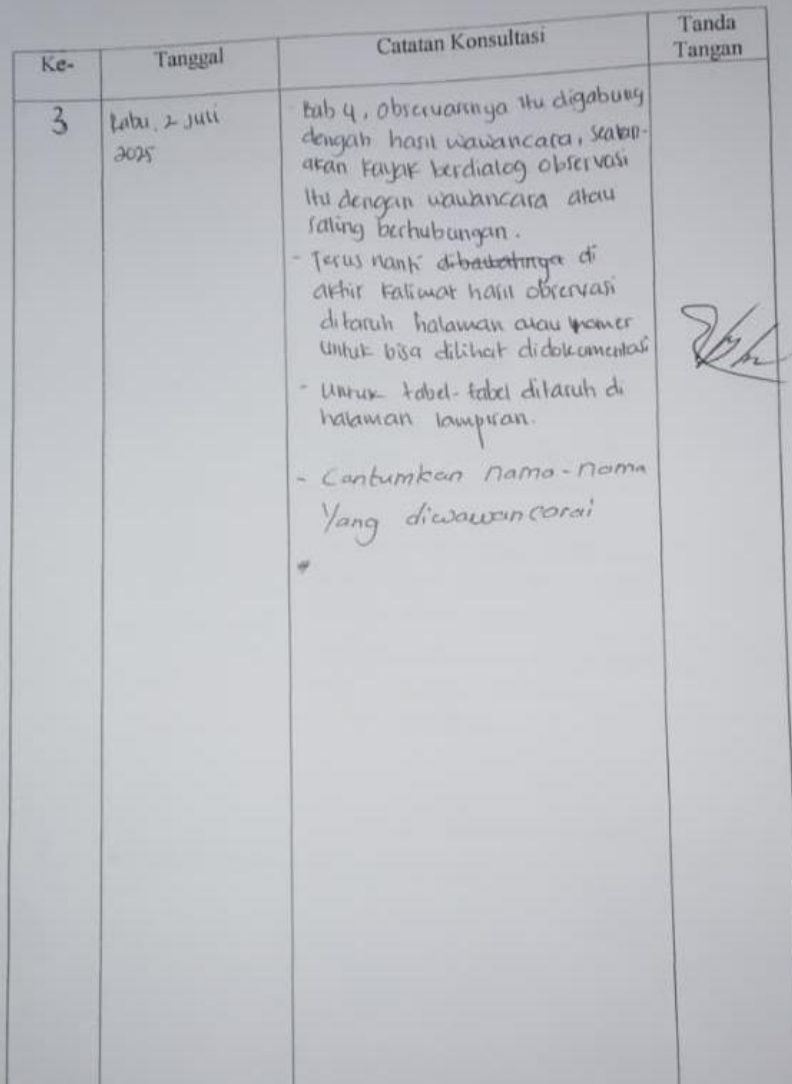 Ke-
Tanggal
Catatan Konsultasi
Tanda
Tangan
3
Rabu, 2 Juli
2025
- Bab 4, observasinya itu digabung
dengan hasil wawancara, seakan-
akan kayak berdialog observasi
itu dengan wawancara atau
saling berhubungan.
- Terus nanti dibawahnya di
akhir kalimat hasil observasi
ditaruh halaman atau nomer
untuk bisa dilihat didokumentasi
- Untuk tabel-tabel ditaruh di
halaman lampiran.
- Cantumkan nama-nama
Yang diwawancarai